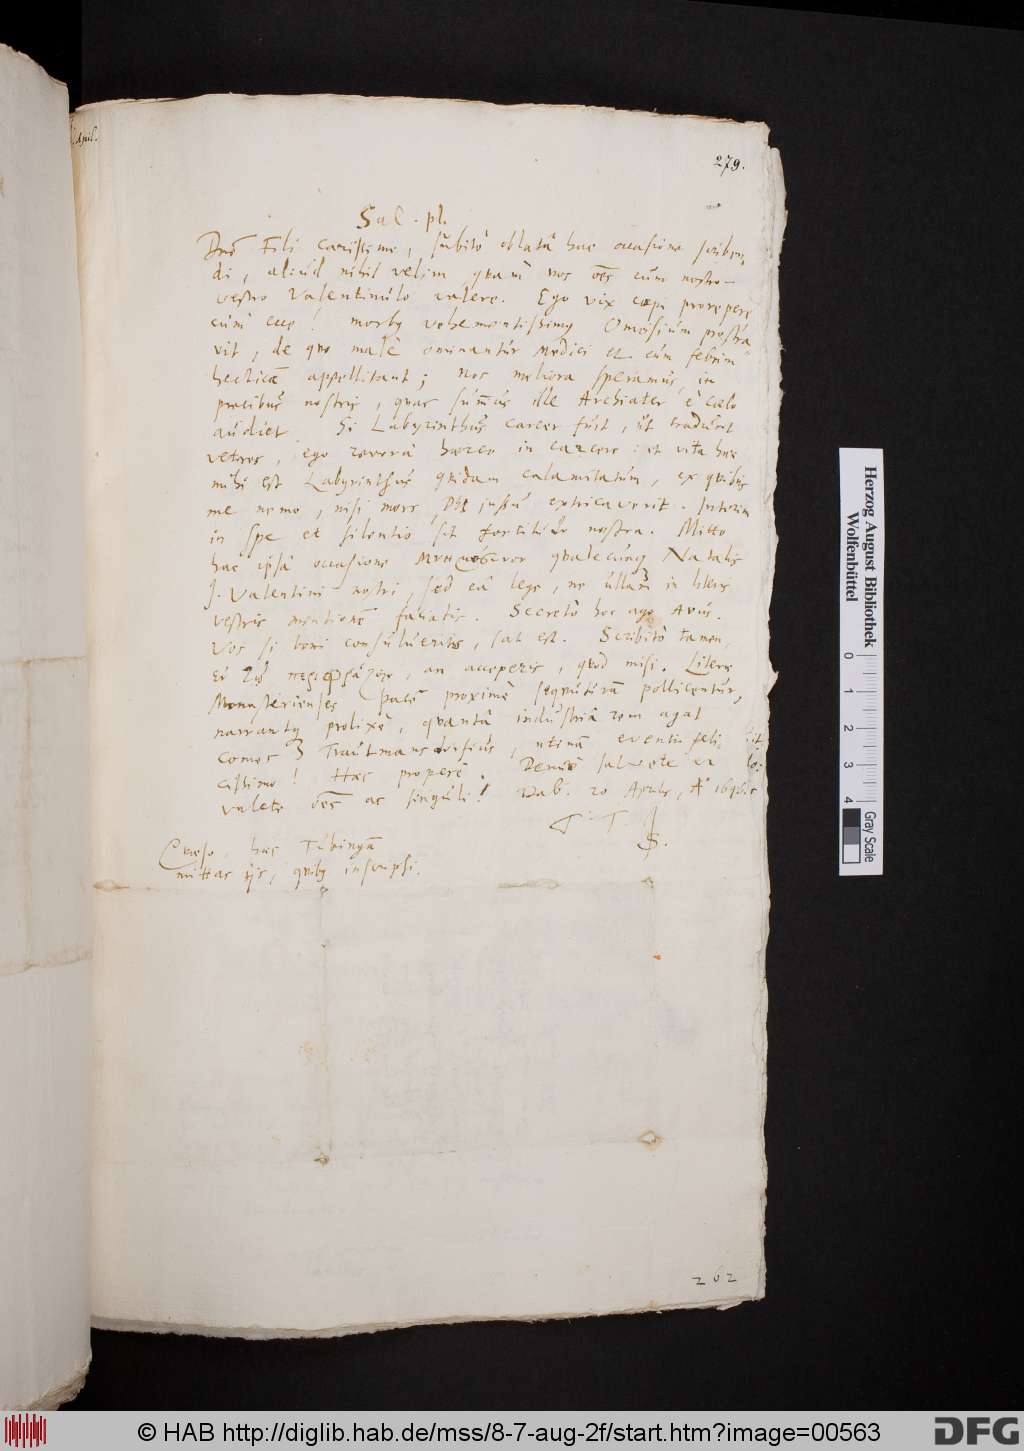 . Apil.
279.
Sal. pl.
Dnē Fili carissime, subitò oblatâ hac occasione scriben,
di, aliud nihil velim quàm vos oēs cum nostro
vestro Valentinulo valere. Ego vix cœpi prorepere
cùm ecce! morbg vehementissimg Omeisium prostra
vit, de quo malè ominantur Medici et eum febrim
hecticā appellitant; nos meliora speramus, in
precibus nostris, quas summus ille Archiater è cœlo
audiet. Si Labyrinthus carcer fuit, ut tradunt
veteres, ego reverâ hæreo in carcere: et vita hæc
mihi est Labyrinthus quidam calamitatum, ex quibus
me nemo, nisi mors Dei jussu extricaverit. Interim
in spe et silentio sit fortitudo nostra. Mitto
hac ipsâ occasione qualecung Natalis
J. Valentini nostri, sed eâ lege, ne ullam in literis
vestris mentionē faciatis. Secretò hoc ago Avus.
Vos si boni consulueritis, sat est. Scribito tamen,
an acceperis, quod misi. Literæ
Monasterienses pacē proximè sequuturam pollicentur,
narrantg prolixè, quantâ industriâ rem agat
Comes à Trautmansdorfius, utinā eventu feli
cissimo! Hæc properè. Denuò salvete et
valete oēs ac singuli! Dab. 20 Aprilis, A° 1646
T. T.
S.
Quæso, has Tubingā
mittas ijs, quibg inscripsi.
262
Herzog August Bibliothek
Wolfenbüttel
0 1 2 3 4
Gray Scale
© HAB http://diglib.hab.de/mss/8-7-aug-2f/start.htm?image=00563
DFG